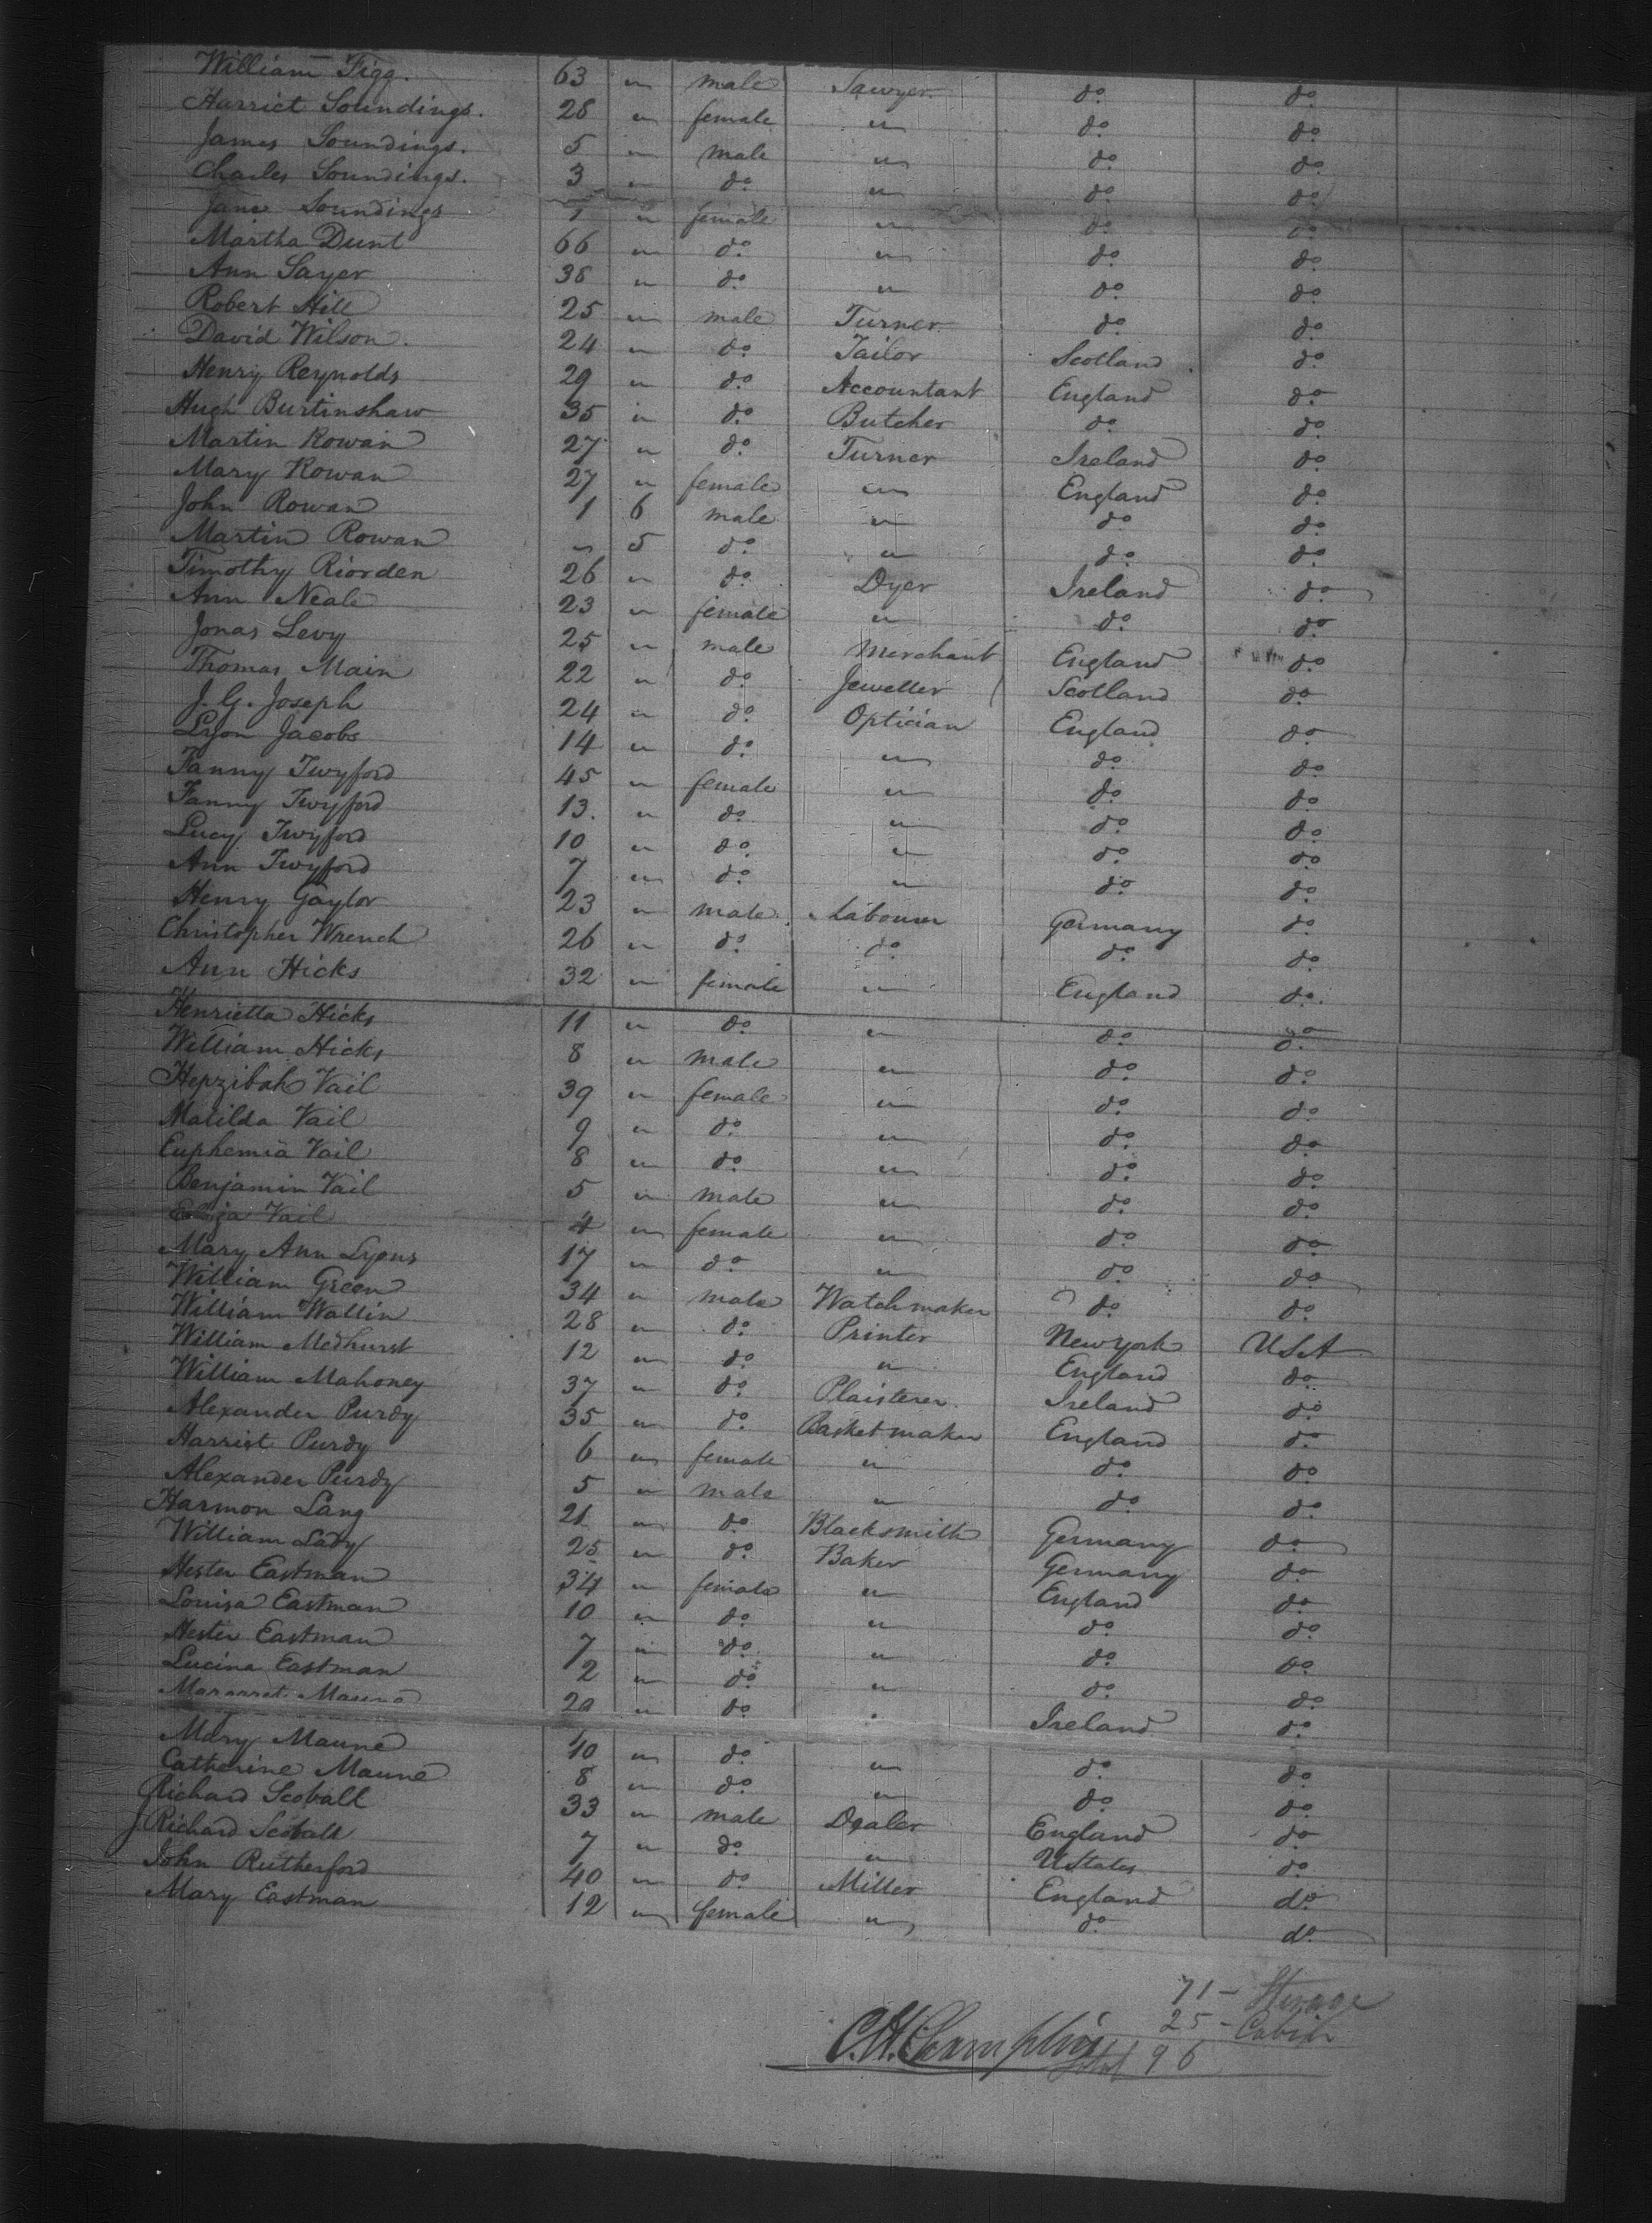 William Figg. 63 " male Sawyer. do. do.
Harriet Soundings. 28 " female " do. do.
James Soundings. 5 " male " do. do.
Charles Soundings. 3 " do. " do. do.
Jane Soundings 1 " female " do. do.
Martha Dunt 66 " do. " do. do.
Ann Sayer 38 " do. " do. do.
Robert Hill 25 " male Turner do. do.
David Wilson. 24 " do. Tailor Scotland do.
Henry Reynolds 29 " do. Accountant England do.
Hugh Burtinshaw 35 " do. Butcher do. do.
Martin Rowan 27 " do. Turner Ireland do.
Mary Rowan 27 " female " England do.
John Rowan 1 6 male " do. do.
Martin Rowan " 5 do. " do. do.
Timothy Riorden 26 " do. Dyer Ireland do.
Ann Neale 23 " female " do. do.
Jonas Levy 25 " male Merchant England do.
Thomas Main 22 " do. Jeweller Scotland do.
J. G. Joseph 24 " do. Optician England do.
Lyon Jacobs 14 " do. " do. do.
Fanny Twyford 45 " female " do. do.
Fanny Twyford 13. " do. " do. do.
Lucy Twyford 10 " do. " do. do.
Ann Twyford 7 " do. " do. do.
Henry Gaylor 23 " male Labourer Germany do.
Christopher Wrench 26 " do. do. do. do.
Ann Hicks 32 " female " England do.
Henrietta Hicks 11 " do. " do. do.
William Hicks 8 " male " do. do.
Hepzibah Vail 39 " female " do. do.
Matilda Vail 9 " do. " do. do.
Euphemia Vail 8 " do. " do. do.
Benjamin Vail 5 " male " do. do.
Eliza Vail 4 " female " do. do.
Mary Ann Lyons 17 " do. " do. do.
William Green 34 " male Watchmaker do. do.
William Wallin 28 " do. Printer Newyork USA
William Medhurst 12 " do. " England do.
William Mahoney 37 " do. Plaisterer. Ireland do.
Alexander Purdy 35 " do. Basketmaker England do.
Harriet Purdy 6 " female " do. do.
Alexander Purdy 5 " male " do. do.
Harmon Lang 21 " do. Blacksmith Germany do.
William Lady 25 " do. Baker Germany do.
Hester Eastman 34 " female " England do.
Louisa Eastman 10 " do. " do. do.
Hester Eastman 7 " do. " do. do.
Lucina Eastman 2 " do. " do. do.
Margaret Maune " do. " Ireland do.
Mary Maune 10 " do. " do. do.
Catherine Maune 8 " do. " do. do.
Richard Scoball 33 " male Dealer England do.
Richard Scoball 7 " do. " UStates do.
John Rutherford 40 " do. Miller England do.
Mary Eastman 12 " female " do. do.
71 - Sterage
25 - Cabin
C. H. Champlin
total 96